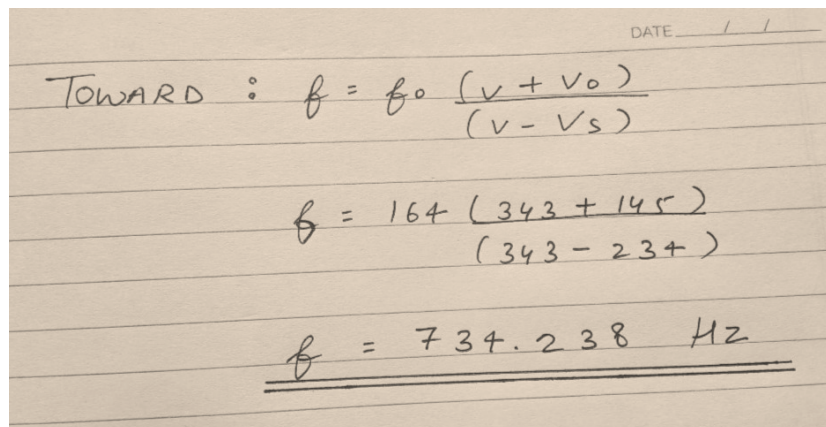 DATE / /
TOWARD : f = fo (v + vo)
(v - vs)
f = 164 (343 + 145)
(343 - 234)
f = 734.238 Hz